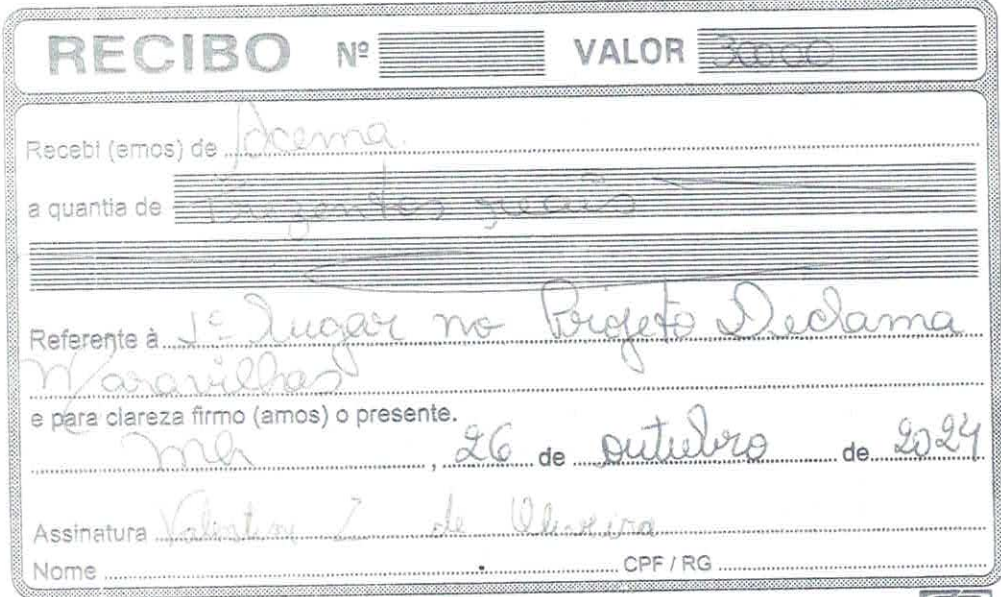 RECIBO Nº VALOR 300,00
Recebi (emos) de Acema.
a quantia de Trezentos reais
Referente à 1º lugar no Projeto Declama
Maravilhas
e para clareza firmo (amos) o presente.
, 26 de outubro de 2024
Assinatura Valentim Z de Oliveira
Nome CPF / RG